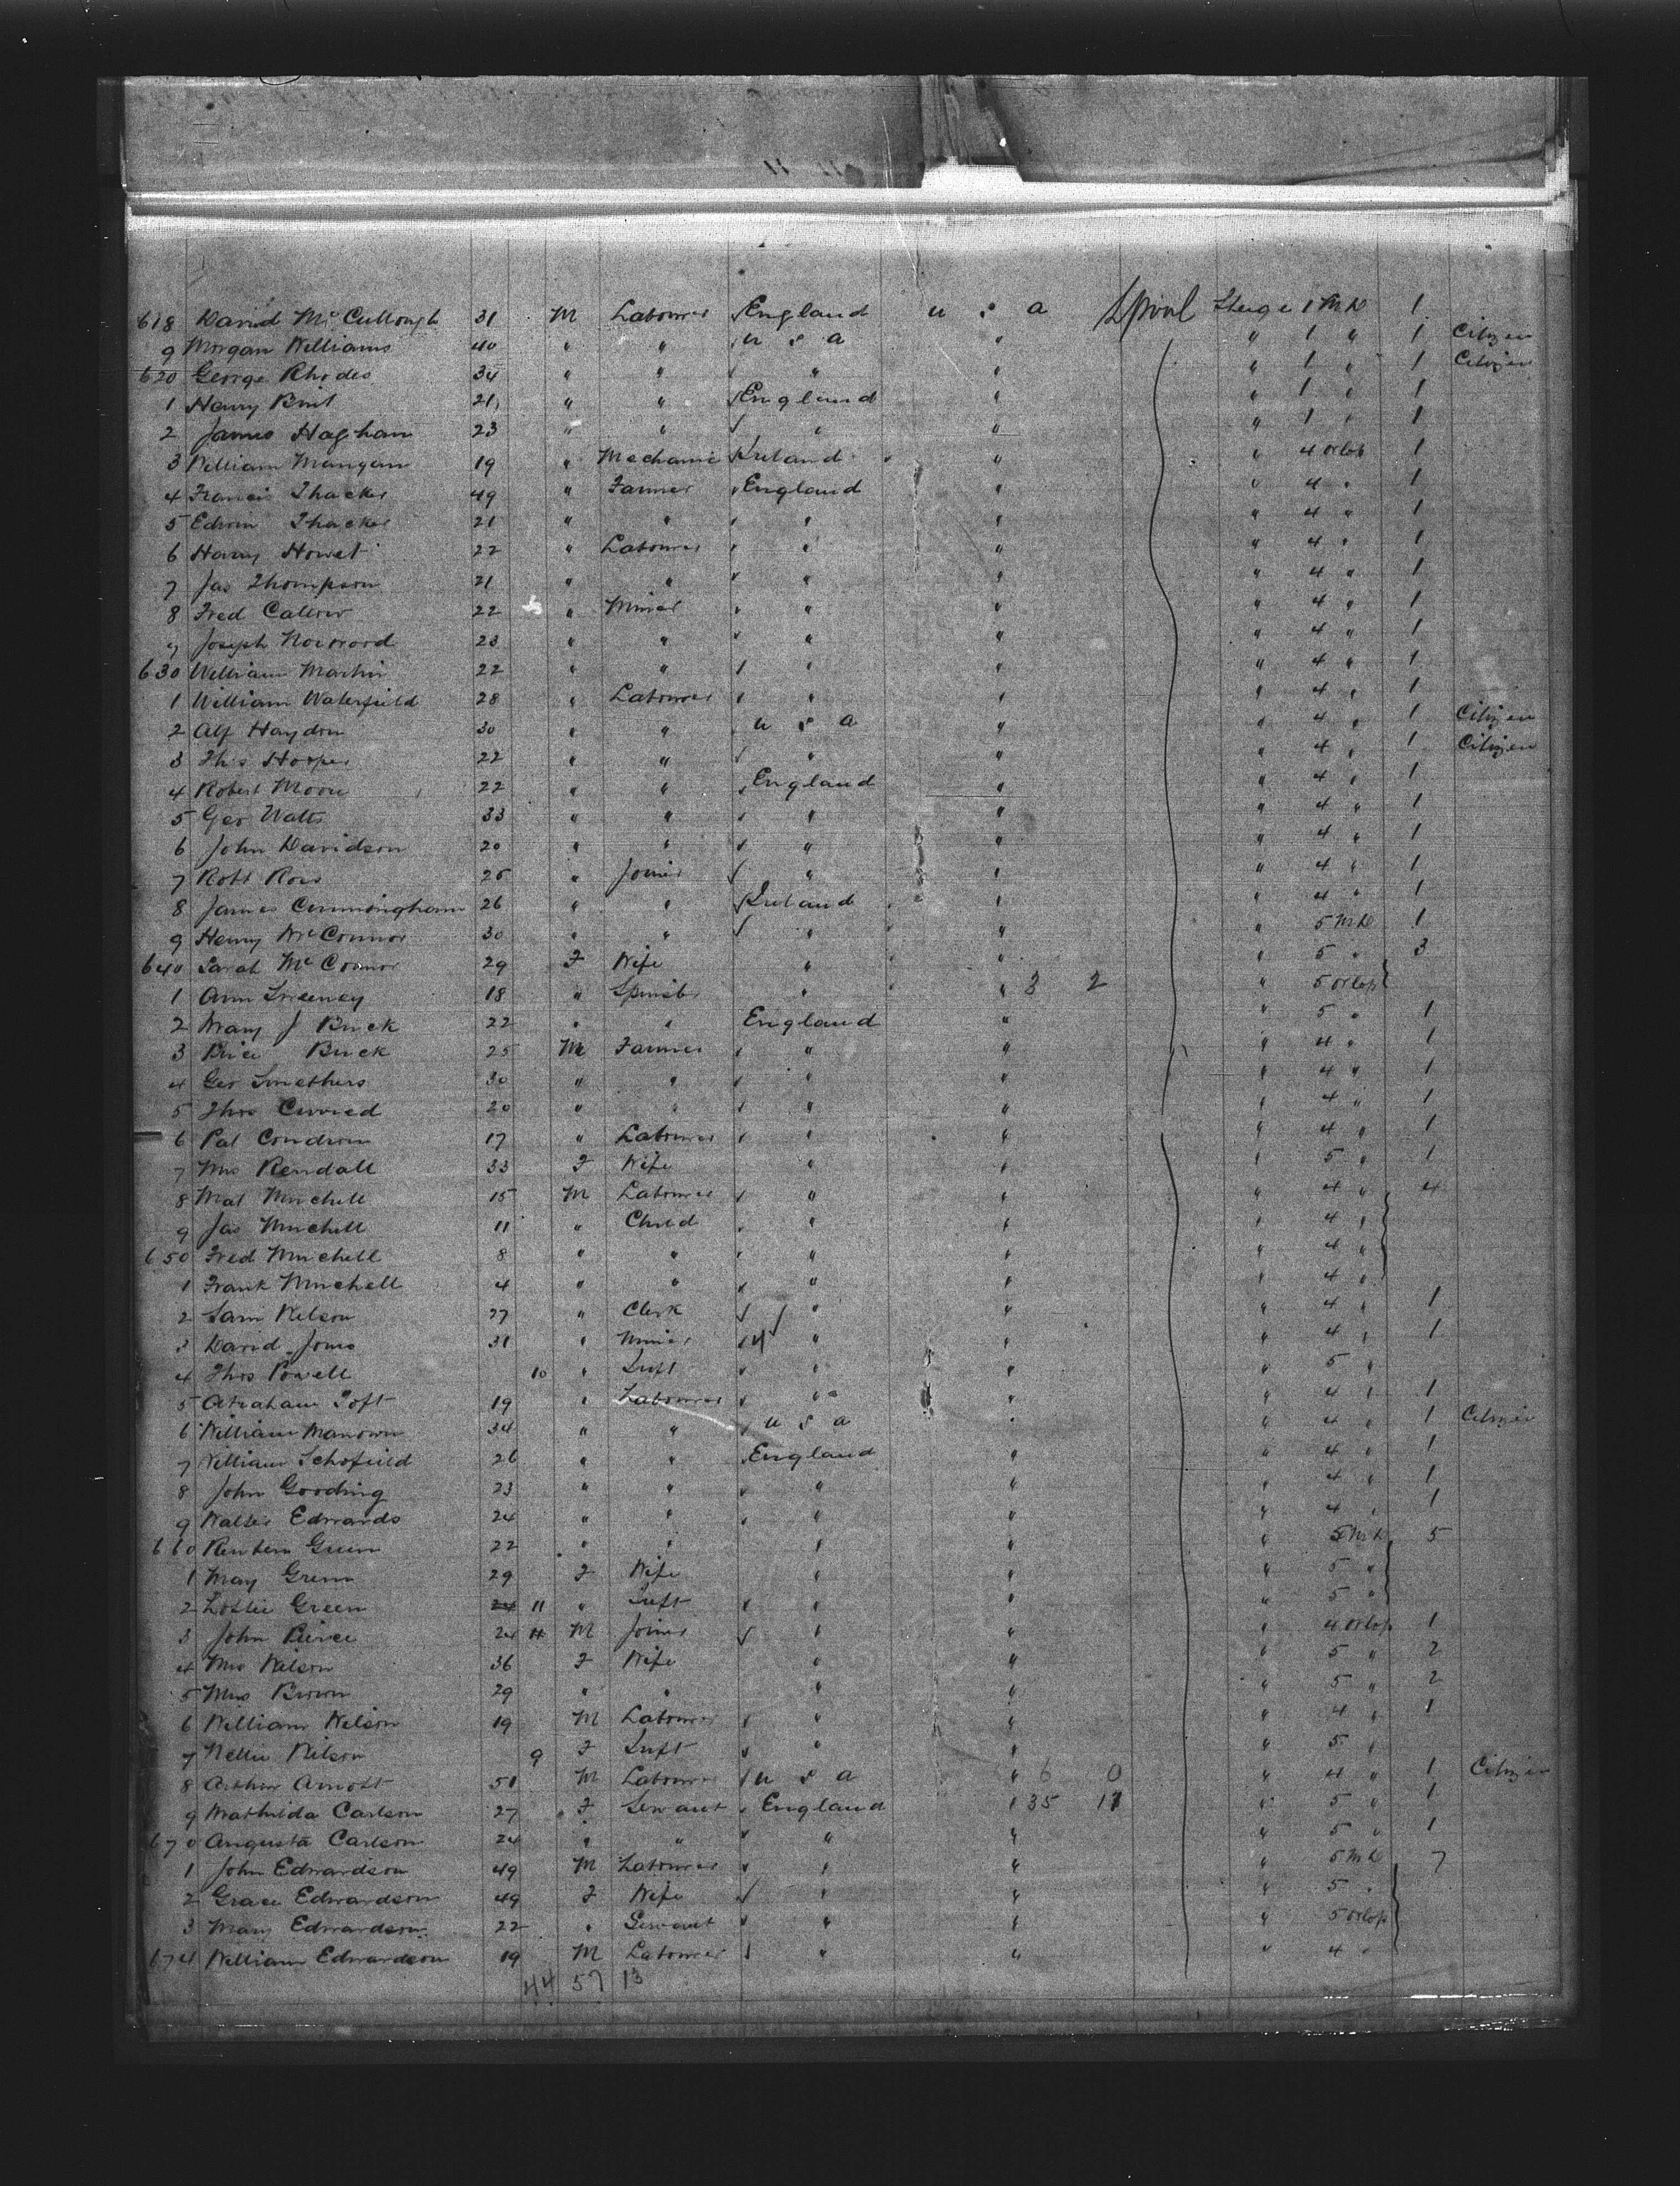 618 David McCullough 31 M Labourer England U S A L'pool Steege 1 M D 1
9 Morgan Williams 40 " " U S A " " 1 " 1 Citizen
620 George Rhodes 34 " " " " " 1 " 1 Citizen
1 Henry 21 " " England " " 1 " 1
2 James Hagham 23 " " " " " 1 " 1
3 William Mangan 19 " Mechanic Ireland " " 4 orlop 1
4 Francis Thacker 49 " Farmer England " " 4 " 1
5 Edwin Thacker 21 " " " " " 4 " 1
6 Harry Howet 22 " Labourer " " " 4 " 1
7 Jas Thompson 21 " " " " " 4 " 1
8 Fred Callow 22 " Miner " " " 4 " 1
9 Joseph Norwood 23 " " " " " 4 " 1
630 William Martin 22 " " " " " 4 " 1
1 William Waterfield 28 " Labourer " " " 4 " 1
2 Alf Haydon 30 " " U S A " " 4 " 1 Citizen
3 Thos Hooper 22 " " " " " 4 " 1 Citizen
4 Robert Moore 22 " " England " " 4 " 1
5 Geo Watts 33 " " " " " 4 " 1
6 John Davidson 20 " " " " " 4 " 1
7 Robt Ross 25 " Joiner " " " 4 " 1
8 James Cunningham 26 " " Ireland " " 4 " 1
9 Henry McConnor 30 " " " " " 5 M D 1
640 Sarah McConnor 29 F Wife " " " 5 " 3
1 Ann Sweeney 18 " Spinstr " " 3 2 " 5 orlop
2 Mary J Buck 22 " " England " " 5 " 1
3 Buck 25 M Farmer " " " 4 " 1
4 Geo Smethers 30 " " " " " 4 " 1
5 Thos 20 " " " " " 4 " 1
6 Pat Condron 17 " Labourer " " " 4 " 1
7 Mrs Rendall 33 F Wife " " " 5 " 1
8 Mat Minchell 15 M Labourer " " " 4 " 4
9 Jas Minchell 11 " Child " " " 4 "
650 Fred Minchell 8 " " " " " 4 "
1 Frank Minchell 4 " " " " " 4 "
2 Sam Nelson 27 " Clerk " " " 4 " 1
3 David Jones 31 " Miner " " " 4 " 1
4 Thos Powell 10 " Inft " " " 5 "
5 Abraham Toft 19 " Labourer " " " 4 " 1
6 William Manown 34 " " U S A " " 4 " 1 Citizen
7 William Schofield 26 " " England " " 4 " 1
8 John Gooding 23 " " " " " 4 " 1
9 Walter Edwards 24 " " " " " 4 " 1
660 Reuben Green 22 " " " " " 5 M D 5
1 May Green 29 F Wife " " " 5 "
2 Lottie Green 11 " Inft " " " 5 "
3 John Pierce 24 M Joiner " " " 4 orlop 1
4 Mrs Wilson 36 F Wife " " " 5 " 2
5 Mrs Brown 29 " " " " " 5 " 2
6 William Wilson 19 M Labourer " " " 4 " 1
7 Nellie Wilson 9 F Inft " " " 5 "
8 Arthur Arnott 51 M Labourer U S A " 6 0 " 4 " 1 Citizen
9 Mathilda Carlson 27 F Servant England " 35 11 " 5 " 1
670 Augusta Carlson 24 " " " " " 5 " 1
1 John Edwardson 49 M Labourer " " " 5 M D 7
2 Grace Edwardson 49 F Wife " " " 5 "
3 Mary Edwardson 22 " Servant " " " 5 orlop
674 William Edwardson 19 M Labourer " " " 4 "
44 57 13